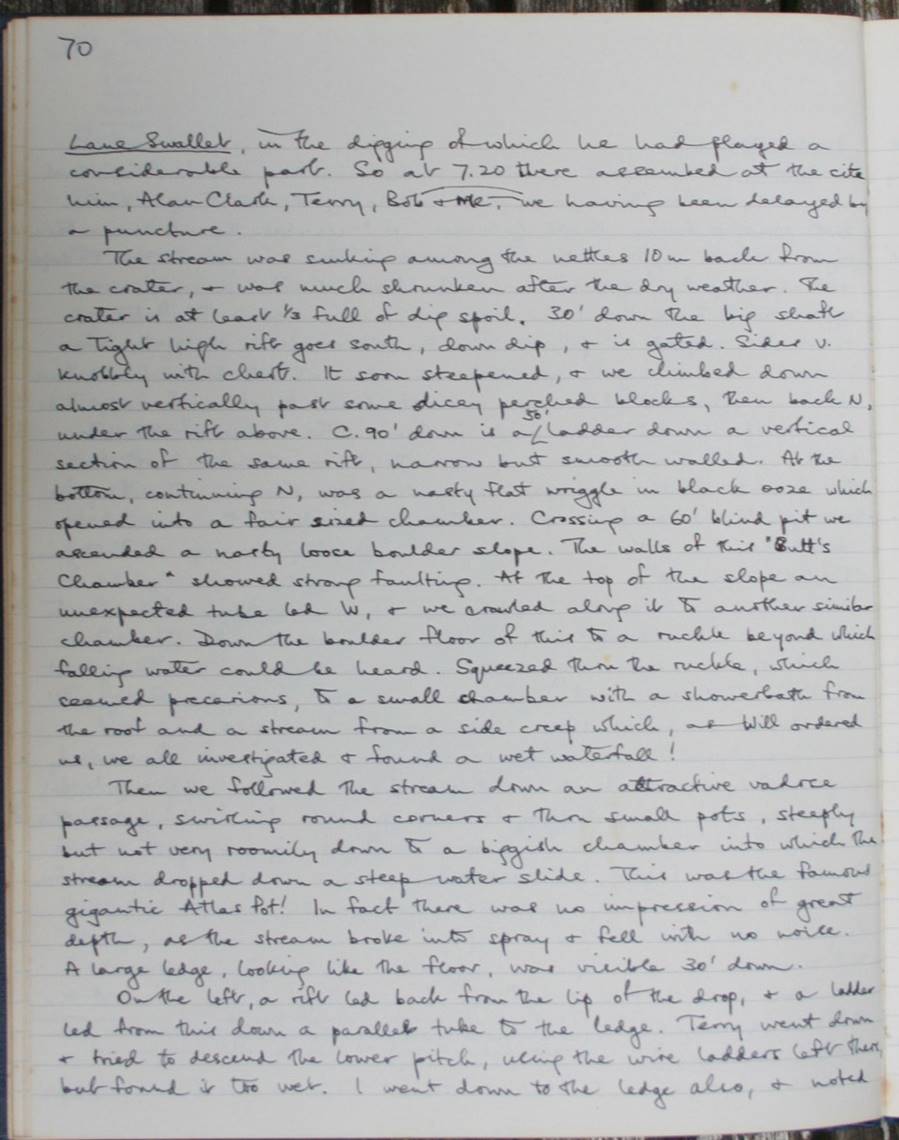 70
Lane Swallet, in the digging of which he had played a
considerable part. So at 7.20 there assembled at the cite
him, Alan Clark, Terry, Bob + me, we having been delayed by
a puncture.
The stream was sinking among the nettles 10m back from
the crater, + was much shrunken after the dry weather. The
crater is at least 1/3 full of dig spoil. 30' down the big shaft
a tight high rift goes south, down dip, + is gated. Sides v.
knobbly with chert. It soon steepened, + we climbed down
almost vertically past some dicey perched blocks, then back N,
under the rift above. C. 90' down is a 50' ladder down a vertical
section of the same rift, narrow but smooth walled. At the
bottom, continuing N, was a nasty flat wriggle in black ooze which
opened into a fair sized chamber. Crossing a 60' blind pit we
ascended a nasty loose boulder slope. The walls of this "Butt's
Chamber" showed strong faulting. At the top of the slope an
unexpected tube led W, + we crawled along it to another similar
chamber. Down the boulder floor of this to a ruckle beyond which
falling water could be heard. Squeezed thru the ruckle, which
seemed precarious, to a small chamber with a showerbath from
the roof and a stream from a side creep which, as Will ordered
us, we all investigated + found a wet waterfall!
Then we followed the stream down an attractive vadose
passage, swirling round corners + thru small pots, steeply
but not very roomily down to a biggish chamber into which the
stream dropped down a steep water slide. This was the famous
gigantic Atlas Pot! In fact there was no impression of great
depth, as the stream broke into spray + fell with no noise.
A large ledge, looking like the floor, was visible 30' down.
On the left, a rift led back from the lip of the drop, + a ladder
led from this down a parallel tube to the ledge. Terry went down
+ tried to descend the lower pitch, using the wire ladders left there,
but found it too wet. I went down to the ledge also, + noted